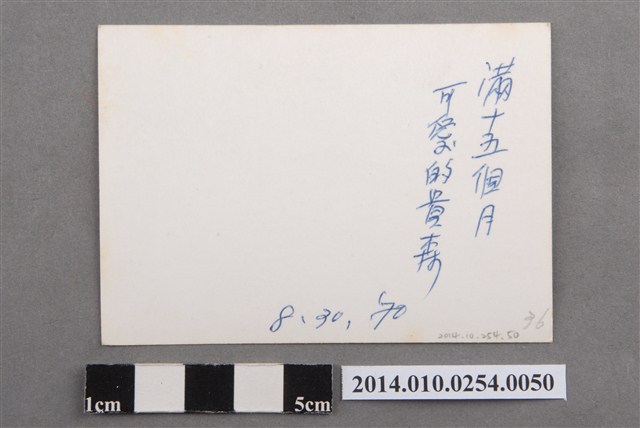 滿十五個月
可愛的貴森
8、30、'70
36
2014.10.254.50
1cm
5cm
2014.010.0254.0050